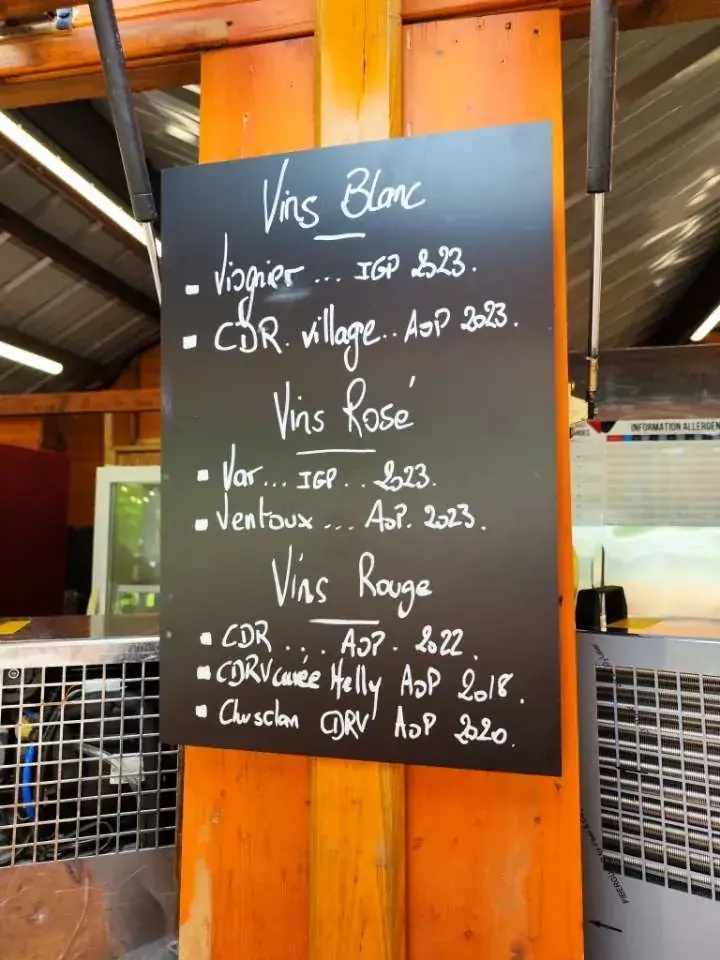 Vins Blanc
Viognier ... IGP 2023.
CDR. village.. AOP 2023.
Vins Rosé
Var... IGP.. 2023.
Ventoux ... AOP. 2023.
Vins Rouge
CDR ... AOP. 2022.
CDRV cuvée Helly AOP 2018.
Chusclan CDRV AOP 2020.
INFORMATION ALLERGEN